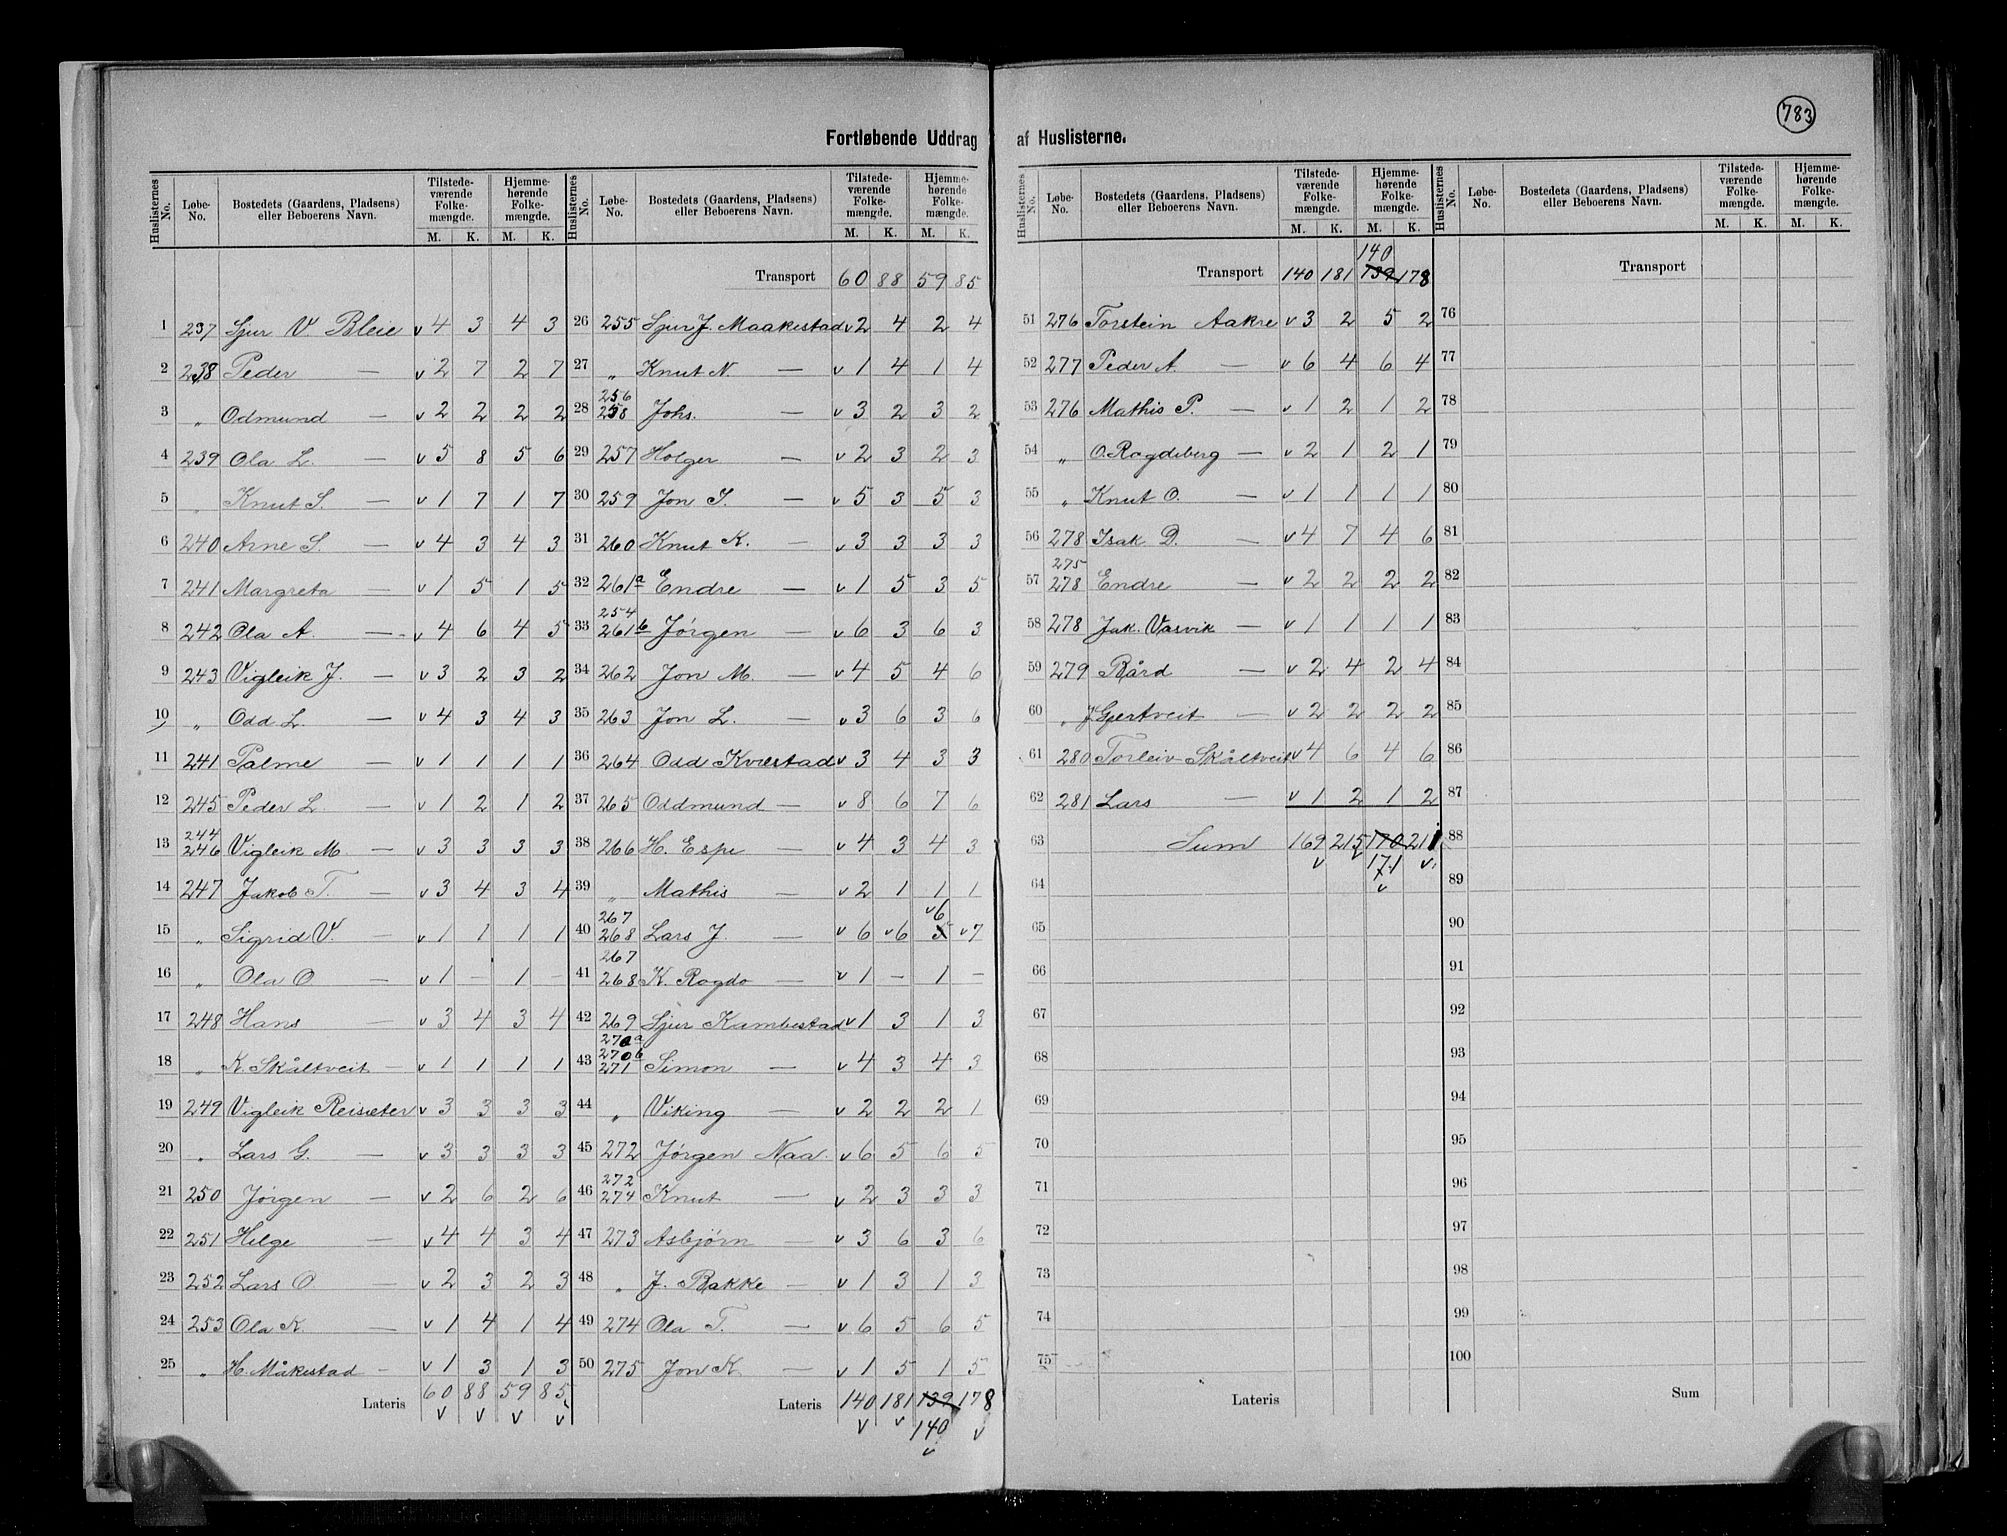 783
Fortløbende Uddrag af Huslisterne.
Huslisternes No. Løbe-No. Bostedets (Gaardens, Pladsens) eller Beboerens Navn. Tilstede-værende Folke-mængde. M. K. Hjemme-hørende Folke-mængde. M. K.
1 237 Sjur V. Bleie v 4 3 4 3
2 238 Peder — v 2 7 2 7
3 " Odmund — v 2 2 2 2
4 239 Ola L. — v 5 8 5 6
5 " Knut S. — v 1 7 1 7
6 240 Arne S. — v 4 3 4 3
7 241 Margreta — v 1 5 1 5
8 242 Ola A. — v 4 6 4 5
9 243 Vigleik J. — v 3 2 3 2
10 " Odd L. — v 4 3 4 3
11 241 Palme — v 1 1 1 1
12 245 Peder L. — v 1 2 1 2
13 244 246 Vigleik M. — v 3 3 3 3
14 247 Jakob T. — v 3 4 3 4
15 " Sigrid V. — v 1 1 1 1
16 " Ola O — v 1 — 1 -
17 248 Hans — v 3 4 3 4
18 " K. Skåltveit — v 1 1 1 1
19 249 Vigleik Reisæter v 3 3 3 3
20 " Lars G. — v 3 3 3 3
21 250 Jørgen — v 2 6 2 6
22 251 Helge — v 4 4 3 4
23 252 Lars O — v 2 3 2 3
24 253 Ola K. — v 1 4 1 4
25 " H. Måkestad - v 1 3 1 3
Lateris 60 88 59 85
v v v v
Huslisternes No. Løbe-No. Bostedets (Gaardens, Pladsens) eller Beboerens Navn. Tilstede-værende Folke-mængde. M. K. Hjemme-hørende Folke-mængde. M. K.
Transport 60 88 59 85
26 255 Sjur J. Maakestad v 2 4 2 4
27 " Knut N. — v 1 4 1 4
28 256 258 Johs. — v 3 2 3 2
29 257 Holger — v 2 3 2 3
30 259 Jon S. — v 5 3 5 3
31 260 Knut K. — v 3 3 3 3
32 261a Endre — v 1 5 3 5
33 254 261b Jørgen — v 6 3 6 3
34 262 Jon M. — v 4 5 4 6
35 263 Jon L. — v 3 6 3 6
36 264 Odd Kvæstad v 3 4 3 3
37 265 Oddmund — v 8 6 7 6
38 266 H. Espe — v 4 3 4 3
39 " Mathis — v 2 1 1 1
40 267 268 Lars J. — v 6 v 6 5 v 6 v 7
41 267 268 K. Rogdo — v 1 — 1 —
42 269 Sjur Kambestad v 1 3 1 3
43 270a 270b 271 Simon — v 4 3 4 3
44 " Viking — v 2 2 2 1
45 272 Jørgen Naa. v 6 5 6 5
46 272 274 Knut — v 2 3 3 3
47 273 Asbjørn — v 3 6 3 6
48 " J. Bakke — v 1 3 1 3
49 274 Ola T. — v 6 5 6 5
50 275 Jon K — v 1 5 1 5
Lateris 140 181 139 178
v v 140 v
v
Huslisternes No. Løbe-No. Bostedets (Gaardens, Pladsens) eller Beboerens Navn. Tilstede-værende Folke-mængde. M. K. Hjemme-hørende Folke-mængde. M. K.
140
Transport 140 181 139 178
51 276 Torstein Aakre v 3 2 5 2
52 277 Peder A. — v 6 4 6 4
53 276 Mathis P. — v 1 2 1 2
54 " O. Rogdeberg — v 2 1 2 1
55 " Knut O. — v 1 1 1 1
56 278 Isak D. — v 4 7 4 6
57 275 278 Endre — v 2 2 2 2
58 278 Jak. Vasvik — v 1 1 1 1
59 279 Bård — v 2 4 2 4
60 " J Gjertveit — v 2 2 2 2
61 280 Torleiv Skåltveit v 4 6 4 6
62 281 Lars — v 1 2 1 2
63 Sum 169 215 170 211
64 v v 171 v
v
65
66
67
68
69
70
71
72
73
74
75
Lateris
Huslisternes No. Løbe-No. Bostedets (Gaardens, Pladsens) eller Beboerens Navn. Tilstede-værende Folke-mængde. M. K. Hjemme-hørende Folke-mængde. M. K.
Transport
76
77
78
79
80
81
82
83
84
85
86
87
88
89
90
91
92
93
94
95
96
97
98
99
100
Sum